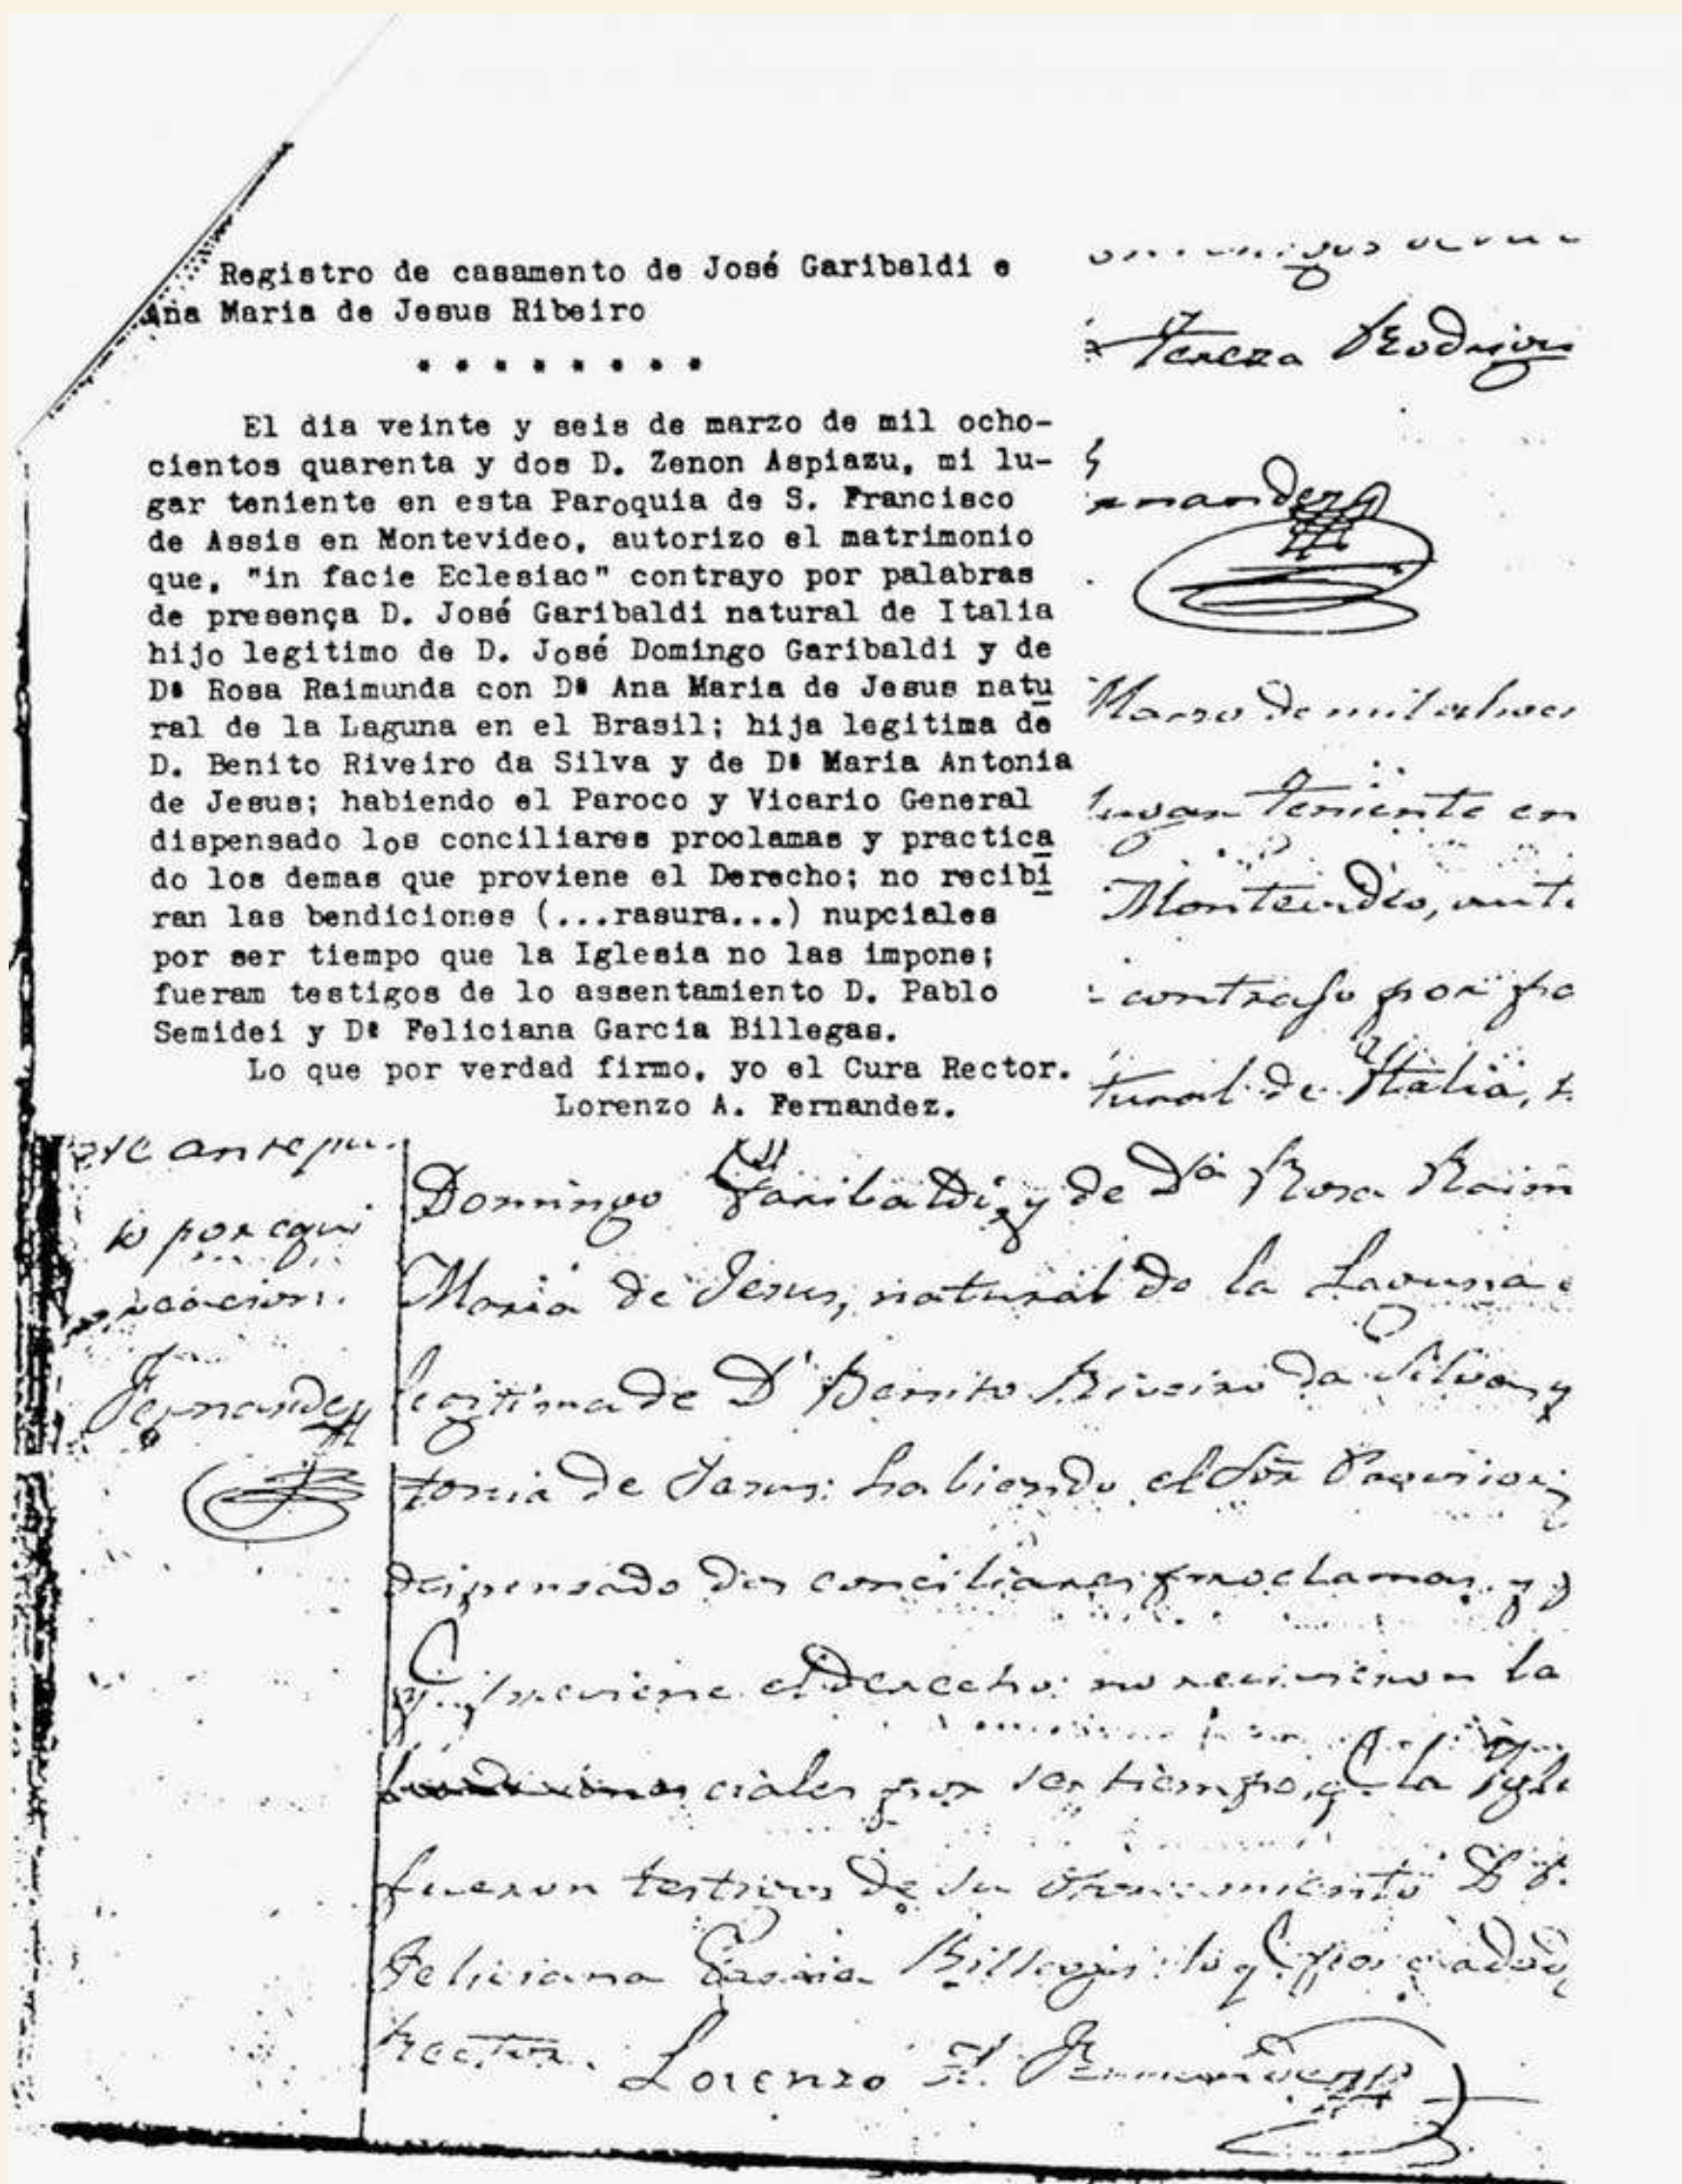 Registro de casamento de José Garibaldi e
Ana Maria de Jesus Ribeiro
* * * * * * * *
El dia veinte y seis de marzo de mil ocho-
cientos quarenta y dos D. Zenon Aspiazu, mi lu-
gar teniente en esta Paroquia de S. Francisco
de Assis en Montevideo, autorizo el matrimonio
que, "in facie Eclesiac" contrayo por palabras
de presença D. José Garibaldi natural de Italia
hijo legitimo de D. José Domingo Garibaldi y de
Dª Rosa Raimunda con Dª Ana Maria de Jesus natu
ral de la Laguna en el Brasil; hija legitima de
D. Benito Riveiro da Silva y de Dª Maria Antonia
de Jesus; habiendo el Paroco y Vicario General
dispensado los conciliares proclamas y practica
do los demas que proviene el Derecho; no recibi
ran las bendiciones (...rasura...) nupciales
por ser tiempo que la Iglesia no las impone;
fueram testigos de lo assentamiento D. Pablo
Semidei y Dª Feliciana Garcia Billegas.
Lo que por verdad firmo, yo el Cura Rector.
Lorenzo A. Fernandez.
Tereza Rodrigu
ernandez
Marzo de mil ochoci
lugar teniente en
Montevideo, auto
contrajo por pa
tural de Italia,
Fernandez
Domingo Garibaldi, y de Da Rosa Raim
Maria de Jesus, natural de la Laguna
legitima de Dn Benito Riveiro da Silva, y
tonia de Jesus: habiendo el Sor
dispensado dos conciliares proclamas, y
q. previene el derecho: no recivieron la
ciales por ser tiempo, q. la Igle
fueron testigos de su Dn P.
Feliciana Garcia Billegas: lo q. por
Rector. Lorenzo A. Fernandez